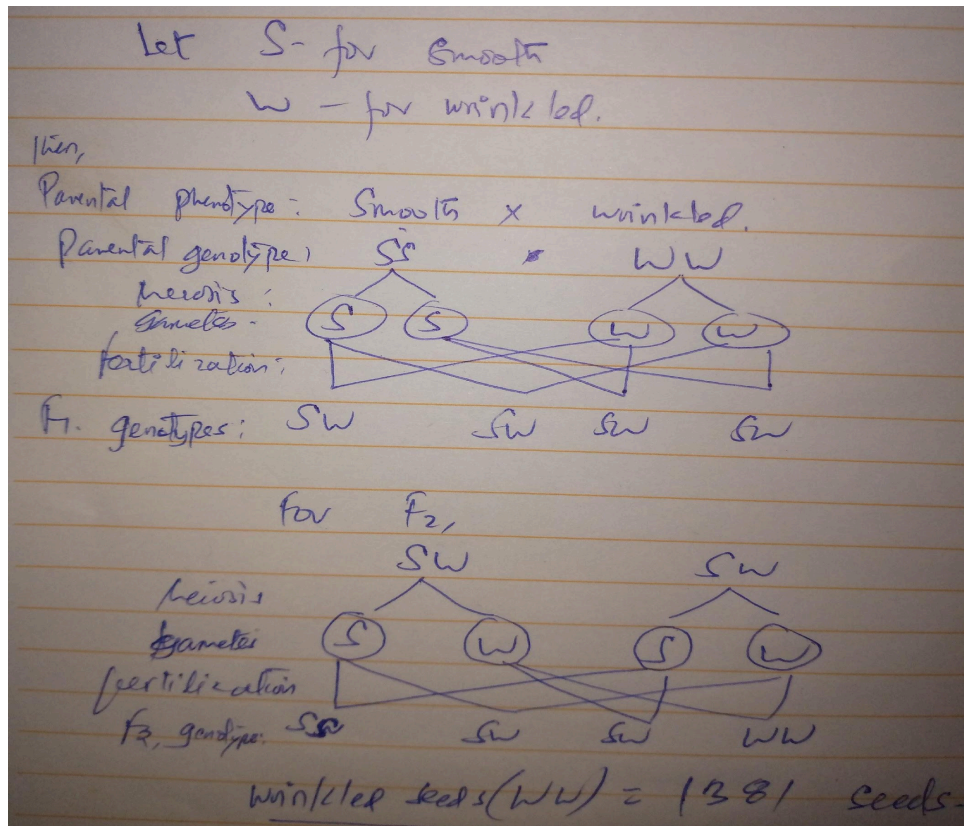 Let S- for smooth
W - for wrinkled.
then,
Parental phenotype: Smooth x wrinkled.
Parental genotype: SS x WW
Meiosis:
Gametes - S S W W
fertilization:
F1. genotypes: SW SW SW SW
For F2,
SW SW
Meiosis
Gametes S W S W
fertilization
F2, genotype: SS SW SW WW
wrinkled seeds (WW) = 1381 seeds-